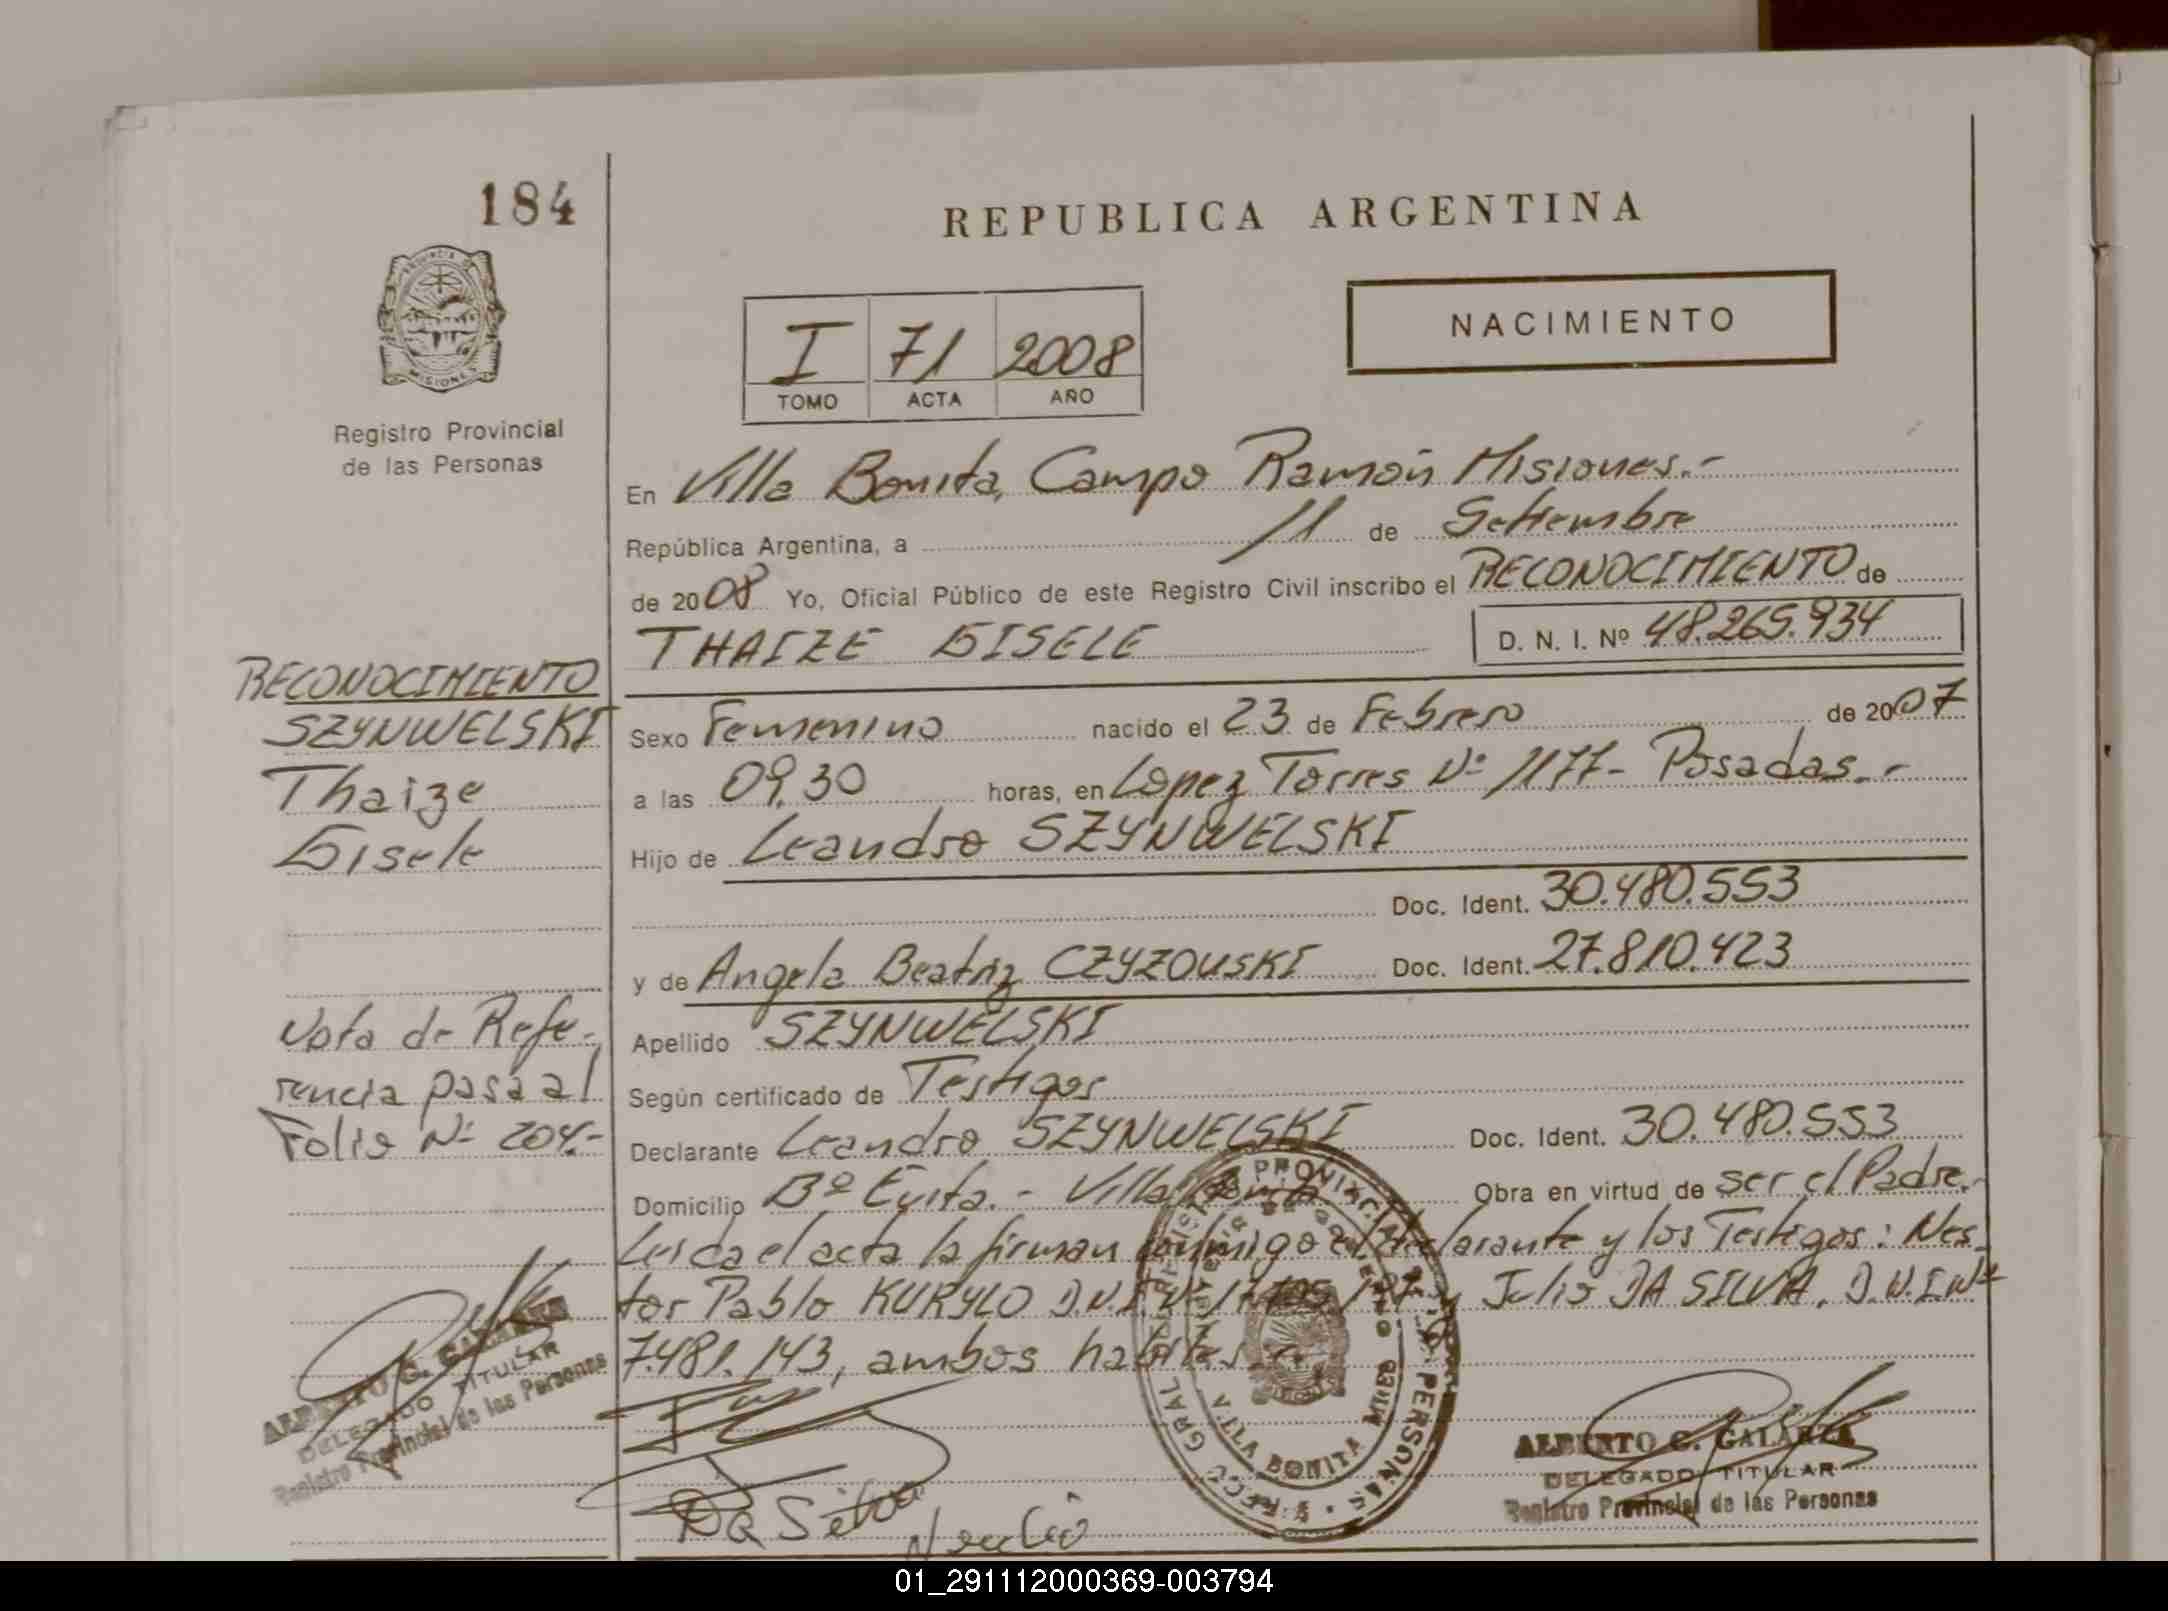 184
REPUBLICA ARGENTINA
PROVINCIA DE
MISIONES
NACIMIENTO
I 71 2008
TOMO ACTA AÑO
Registro Provincial
de las Personas
En Villa Bonita, Campo Ramón Misiones.-
República Argentina, a 11 de Setiembre
de 2008 Yo, Oficial Público de este Registro Civil inscribo el RECONOCIMIENTO de
THAIZE GISELE D. N. I. Nº 48.265.934
RECONOCIMIENTO
SZYNWELSKI
Thaize
Gisele
Sexo Femenino nacido el 23 de Febrero de 2007
a las 09,30 horas, en Lopez Torres Nº 1177- Posadas.-
Hijo de Leandro SZYNWELSKI
Doc. Ident. 30.480.553
y de Angela Beatriz CZYZOUSKI Doc. Ident. 27.810.423
Nota de Refe-
rencia pasa al
Folio Nº 204.-
Apellido SZYNWELSKI
Según certificado de Testigos
Declarante Leandro SZYNWELSKI Doc. Ident. 30.480.553
Domicilio Bº Evita.- Villa Bonita Obra en virtud de ser el Padre.-
Leida el acta la firman conmigo el declarante y los Testigos: Nes-
tor Pablo KURYLO D.N.I. Nº y Julio DA SILVA, D.N.I.Nº
7.481.143, ambos habiles.-
ALBERTO G. GALARZA
DELEGADO TITULAR
Registro Provincial de las Personas
PROVINCIAL PERSONAS
VILLA BONITA
Da Silva
ALBERTO G. GALARZA
DELEGADO TITULAR
Registro Provincial de las Personas
01_291112000369-003794